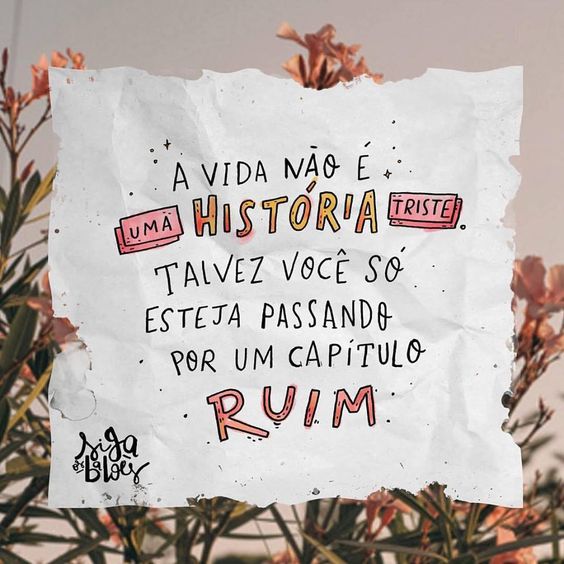 A VIDA NÃO É
UMA HISTÓRIA TRISTE.
TALVEZ VOCÊ SÓ
ESTEJA PASSANDO
POR UM CAPÍTULO
RUIM
siga
os balões